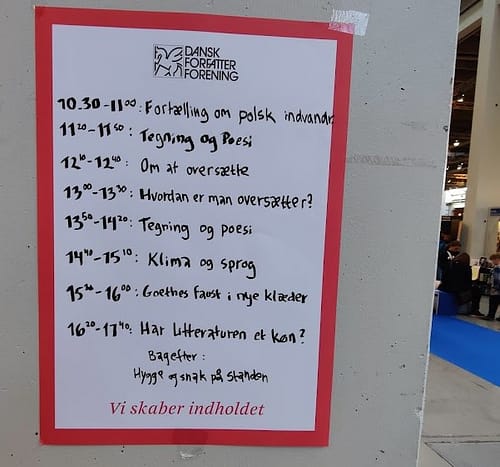 DANSK
FORFATTER
FORENING
10.30-11⁰⁰: Fortælling om polsk indvandr
11²⁰-11⁵⁰: Tegning og Poesi
12¹⁰-12⁴⁰: Om at oversætte
13⁰⁰-13³⁰: Hvordan er man oversætter?
13⁵⁰-14²⁰: Tegning og poesi
14⁴⁰-15¹⁰: Klima og sprog
15³⁰-16⁰⁰: Goethes Faust i nye klæder
16²⁰-17⁴⁰: Har Litteraturen et køn?
Bagefter:
Hygge og snak på standen
Vi skaber indholdet